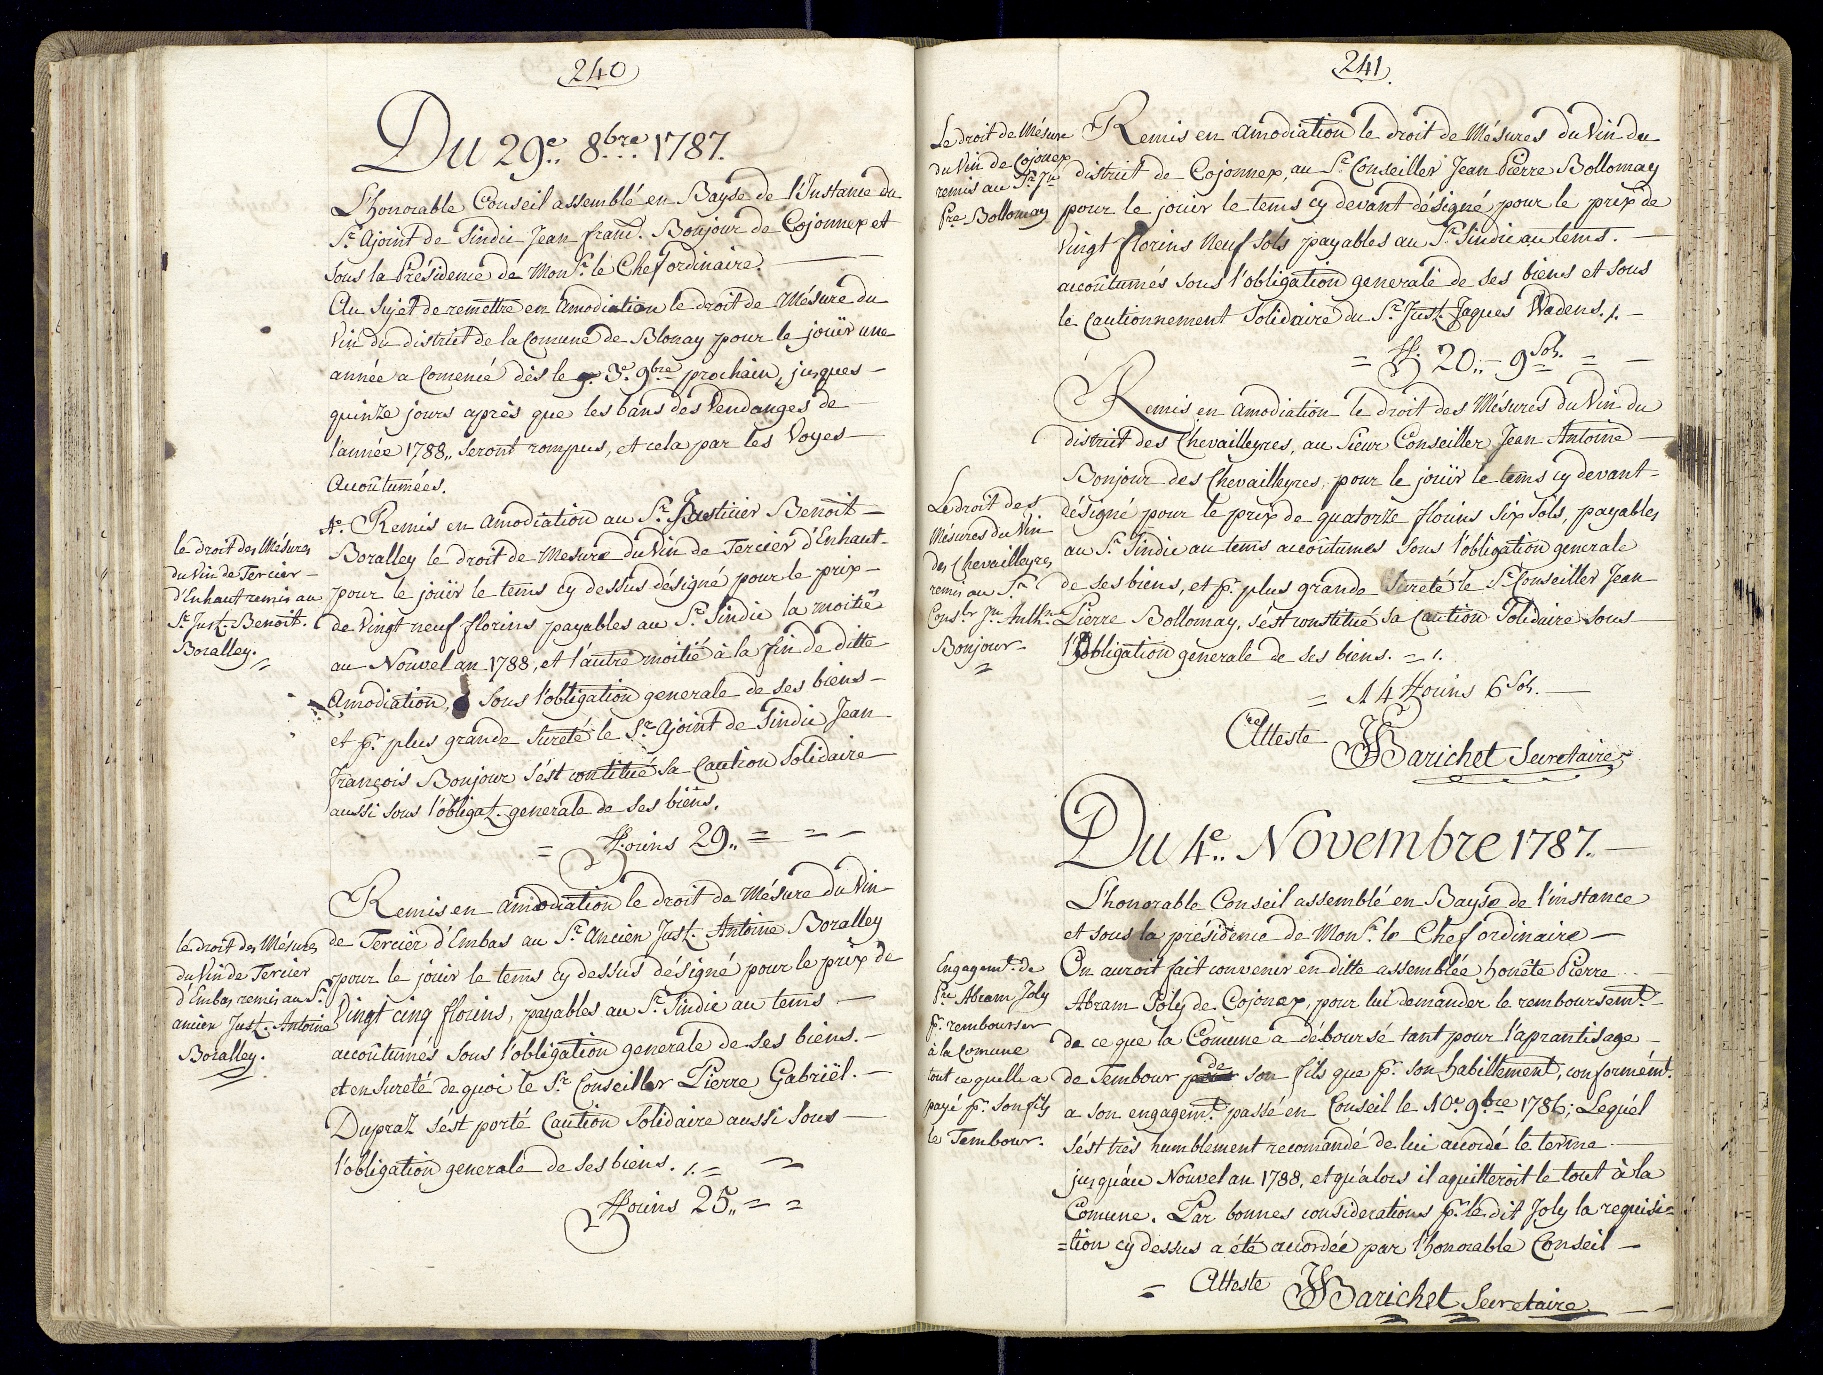 240
Du 29e. 8bre 1787.
L'honorable Conseil assemblé en Bayse de l'Instance du
Sr. Ajoint de Sindic Jean franç. Bonjour de Cojonnex et
sous la Présidence de Monsr. le Chef ordinaire.
Au sujet de remettre en Amodiation le droit de Mésure du
Vin du district de la Comune de Blonay pour le joüir une
année a Comencé dès le 3e. 9bre prochain, jusques
quinze jours après que les bans des Vendanges de
l'année 1788,, seront rompus, et cela par les Voyes
Accoûtumées.
Ac. Remis en Amodiation au Sr. Justicier Benoit
Boralley le droit de Mesure du Vin de Tercier d'Enhaut
pour le joüir le tems cy dessus désigné pour le prix
de Vingt neuf florins payables au Sr. Sindic la moitié
au Nouvel an 1788, et l'autre moitié à la fin de ditte
Amodiation, sous l'obligation generale de ses biens
et pr. plus grande sureté le Sr. Ajoint de Sindic Jean
François Bonjour s'ést contitué sa Caution Solidaire
aussi sous l'obligat. generale de ses biens.
= florins 29,, = = -
le droit des Mésures
du Vin de Tercier
d'Enhaut remis au
Sr. Just. Benoit.
Boralley.
Remis en amodiation le droit de Mésure du Vin
de Terciér d'Embas au Sr. Ancien Just. Antoine Boralley
pour le jouir le tems cy dessus désigné pour le prix de
Vingt cinq florins, payables au Sr. Sindic au tems
accoûtumés sous l'obligation generale de ses biens.
et en sureté de quoi le Sr. Conseiller Pierre Gabriël.
Dupraz s'ést porté Caution Solidaire aussi sous
l'obligation generale de ses biens.
florins 25,, = =
le droit des Mésures
du Vin de Tercier
d'Embas remis au Sr.
ancien Just. Antoine
Boralley.
241.
Remis en amodiation le droit de Mésures du Vin du
district de Cojonnex, au Sr. Conseiller Jean Pierre Bollomay
pour le jouir le tems cy devant désigné pour le prix de
Vingt florins Neuf Sols payables au Sr. Sindic au tems.
accoûtumés sous l'obligation generale de ses biens et sous
le Cautionnement Solidaire du Sr. Just. Jaques Wadens.
= fl. 20,, - 9 Sols. =
Le droit de Mésure
du Vin de Cojonex
remis au Sr. Jn
Pre Bollomay
Remis en amodiation le droit des Mésures du Vin du
district des Chevailleyres, au Sieur Conseiller Jean Antoine
Bonjour des Chevailleyres, pour le joüir le tems cy devant
désigné pour le prix de quatorze florins six Sols, payables
au Sr. Sindic au tems accoûtumés sous l'obligation generale
de ses biens, et pr. plus grande Sureté le Sr. Conseiller Jean
Pierre Bollomay, s'ést constitué sa Caution Solidaire sous
l'Obligation generale de ses biens.
= 14 florins 6 Sols.
Atteste
Barichet Secretaire
Le droit des
Mésures du Vin
des Chevailleyres
remis au Sr.
Conslr. Jn. Anth.
Bonjour
Du 4e. Novembre 1787.
L'honorable Conseil assemblé en Bayse de l'instance
et sous la présidence de Monsr. le Chef ordinaire
On auroit fait convenir en ditte assemblée honête Pierre
Abram Joly de Cojonex, pour lui demander le remboursemt.
de ce que la Comune a déboursé tant pour l'aprantisage
de Tembour de son fils que pr. son habillement, conformémt.
a son engagemt. passé en Conseil le 10e. 9bre 1786; Lequél
s'ést très humblement recomandé de lui acordé le terme
jusqu'au Nouvel an 1788, et qu'alors il aquitteroit le tout à la
Comune. Par bonnes considerations pr. le dit Joly la requisi=
=tion cy dessus a été accordée par l'honorable Conseil
= Atteste Barichet Secretaire
Engagemt. de
Pre Abram Joly
pr. rembourser
à la Comune
tout ce quelle a
payé pr. son fils
le Tembour.